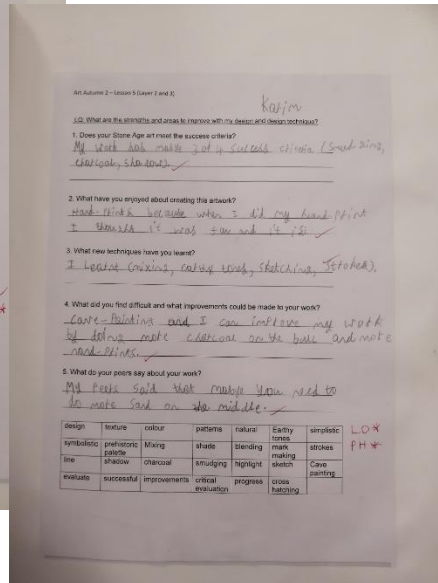 Art Autumn 2 – Lesson 5 (Layer 2 and 3)
Karim
LO: What are the strengths and areas to improve with my design and design technique?
1. Does your Stone Age art meet the success criteria?
My work has 3 of 4 success criteria (Smudging,
charcoal, shadow).
2. What have you enjoyed about creating this artwork?
Hand-Print because when I did my hand-Print
I it was fun and it is!
3. What new techniques have you learnt?
I learnt (mixing, earthy tones, sketching, strokes).
4. What did you find difficult and what improvements could be made to your work?
Cave-Painting and I can improve my work
by doing more charcoal on the bull and more
hand-Prints.
5. What do your peers say about your work?
My Peers Said that maybe you need to
do more Sand on the middle.
design texture colour patterns natural Earthy tones simplistic L.O*
symbolistic prehistoric palette Mixing shade blending mark making strokes PH*
line shadow charcoal smudging highlight sketch Cave painting
evaluate successful improvements critical evaluation progress cross hatching